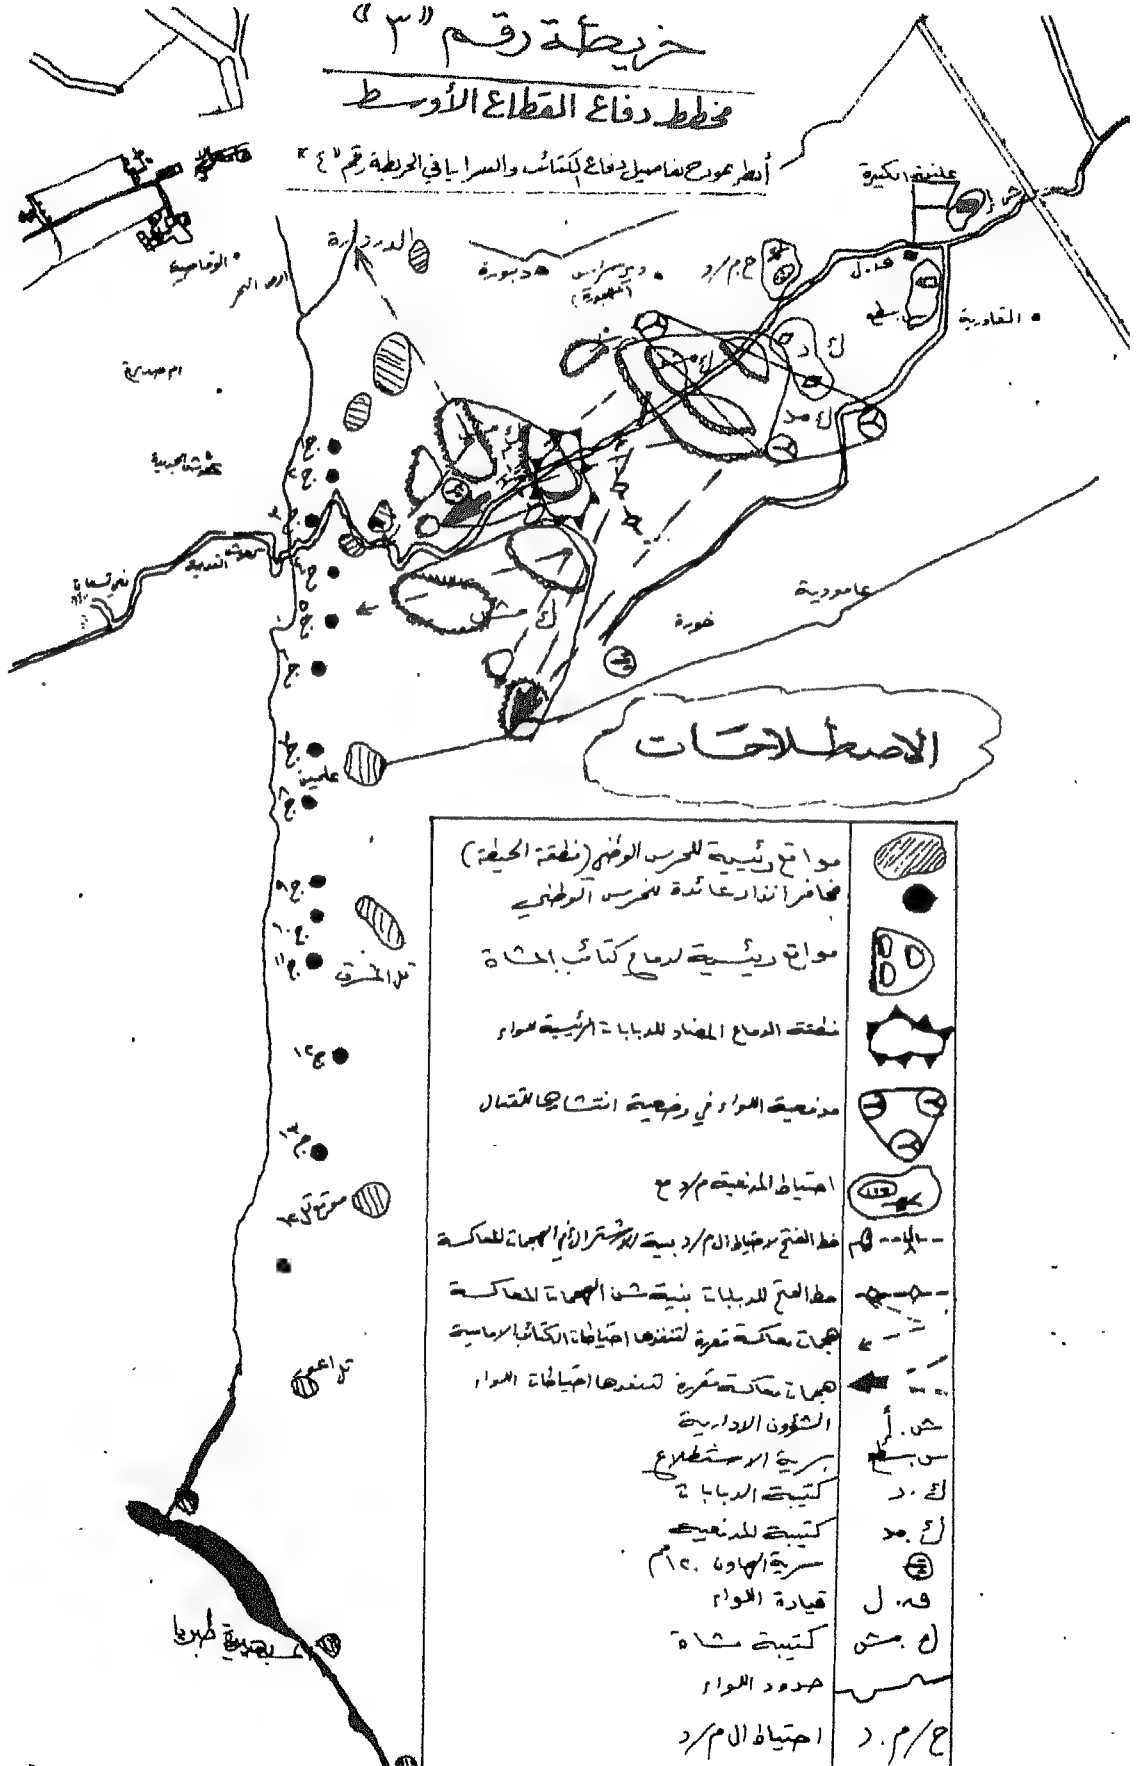 خريطة رقم "٣"
مخطط دفاع القطاع الأوسط
أنظر نموذج تفاصيل دفاع الكتائب والسرايا في الخريطة رقم "٤"
عليقة الكبيرة
ش.أ
الدردارة
دبورة
ح.م/د
ق.ل
س.سطع
القادرية
ك.د
ك.مد
ك.مش
ك.مش
ك.مش
ج١
ج٢
ج٣
ج٤
ج٥
ج٦
ج٧
علمين
ج٨
ج٩
ج١٠
ج١١
ج١٢
ج١٣
عامودية
خورة
تل المشرق
تل اعور
بحيرة طبريا
الاصطلاحات
مواقع رئيسية للحرس الوطني (منطقة الحيطة)
مخافر انذار عائدة للحرس الوطني
مواقع رئيسية لدفاع كتائب المشاة
منطقة الدفاع المضاد للدبابات الرئيسية للواء
مدفعية اللواء في وضعية انتشارها للقتال
احتياط المدفعية م/د مع
خط الفتح لاحتياط ال م/د بنية الاشتراك في الهجمات المعاكسة
خط الفتح للدبابات بنية شن الهجمات المعاكسة
هجمات معاكسة مقررة لتنفذها احتياطات الكتائب الامامية
هجمات معاكسة مقررة لتنفذها احتياطات اللواء
ش.أ الشؤون الادارية
س.سطع سرية الاستطلاع
ك.د كتيبة الدبابات
ك.مد كتيبة المدفعية
سرية الهاون ١٢٠مم
ق.ل قيادة اللواء
ك.مش كتيبة مشاة
حدود اللواء
ح/م.د احتياط ال م/د